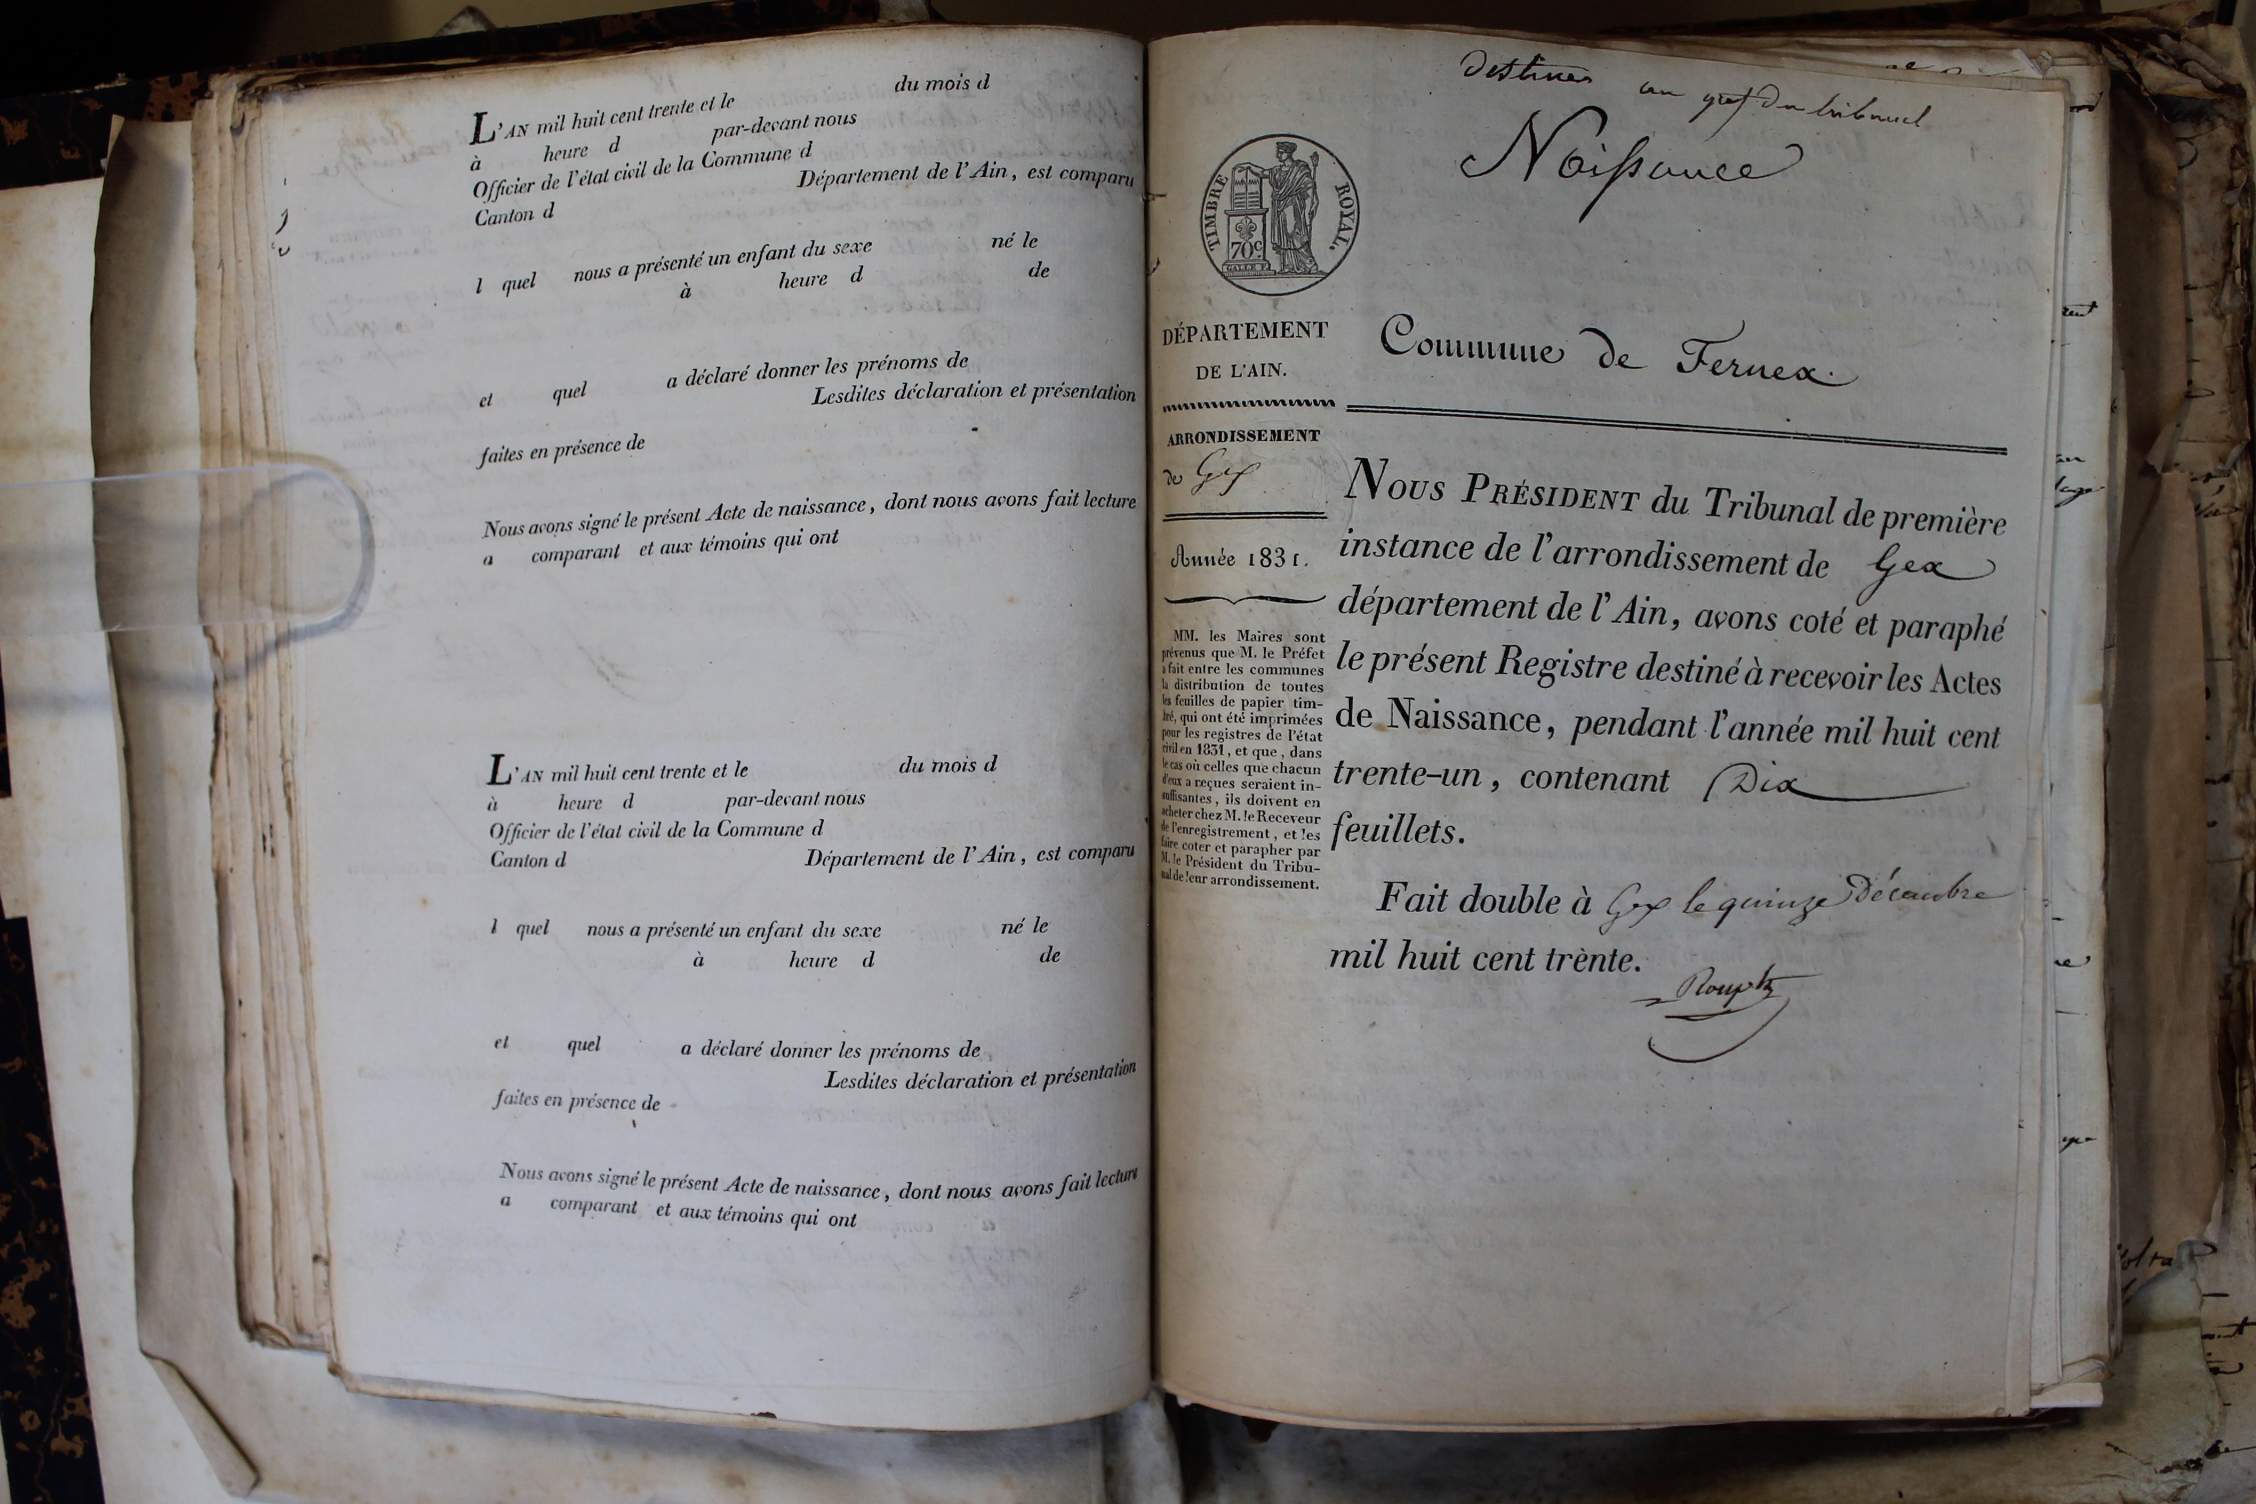 L'AN mil huit cent trente et le du mois d
à heure d par-devant nous
Officier de l'état civil de la Commune d
Canton d Département de l'Ain, est comparu
l quel nous a présenté un enfant du sexe né le
à heure d de
et quel a déclaré donner les prénoms de
Lesdites déclaration et présentation
faites en présence de
Nous avons signé le présent Acte de naissance, dont nous avons fait lecture
a comparant et aux témoins qui ont
L'AN mil huit cent trente et le du mois d
à heure d par-devant nous
Officier de l'état civil de la Commune d
Canton d Département de l'Ain, est comparu
l quel nous a présenté un enfant du sexe né le
à heure d de
et quel a déclaré donner les prénoms de
Lesdites déclaration et présentation
faites en présence de
Nous avons signé le présent Acte de naissance, dont nous avons fait lecture
a comparant et aux témoins qui ont
au gref du tribunal
Naissance
TIMBRE ROYAL.
70c
DÉPARTEMENT
DE L'AIN.
Commune de Fernex.
ARRONDISSEMENT
de Gex
Année 1831.
MM. les Maires sont
prévenus que M. le Préfet
a fait entre les communes
la distribution de toutes
les feuilles de papier tim-
bré, qui ont été imprimées
pour les registres de l'état
civil en 1831, et que, dans
le cas où celles que chacun
d'eux a reçues seraient in-
suffisantes, ils doivent en
acheter chez M. le Receveur
de l'enregistrement, et les
faire coter et parapher par
M. le Président du Tribu-
nal de leur arrondissement.
NOUS PRÉSIDENT du Tribunal de première
instance de l'arrondissement de Gex
département de l'Ain, avons coté et paraphé
le présent Registre destiné à recevoir les Actes
de Naissance, pendant l'année mil huit cent
trente-un, contenant Dix
feuillets.
Fait double à Gex le quinze Décembre
mil huit cent trènte.